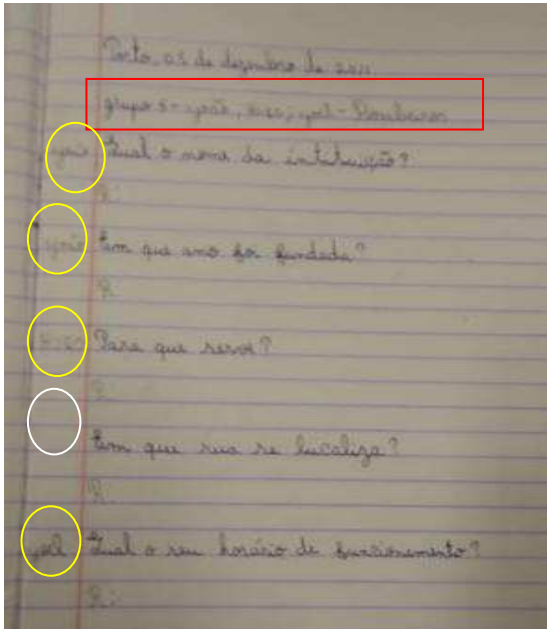 Porto, 03 de dezembro de 2011.
grupo 5- joão, , joel- Bombeiros
joão Qual o nome da intituição?
R:
joão Em que ano foi fundada?
R:
Para que serve?
R:
Em que rua se lucaliza?
R:
joel Qual o seu horário de funcionamento?
R: